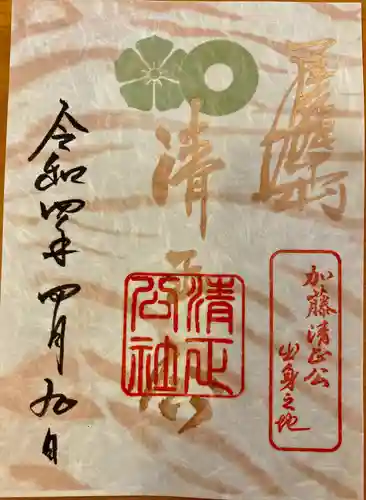 清正公
加藤清正公
出身之地
清正
公社
令和四年四月九日